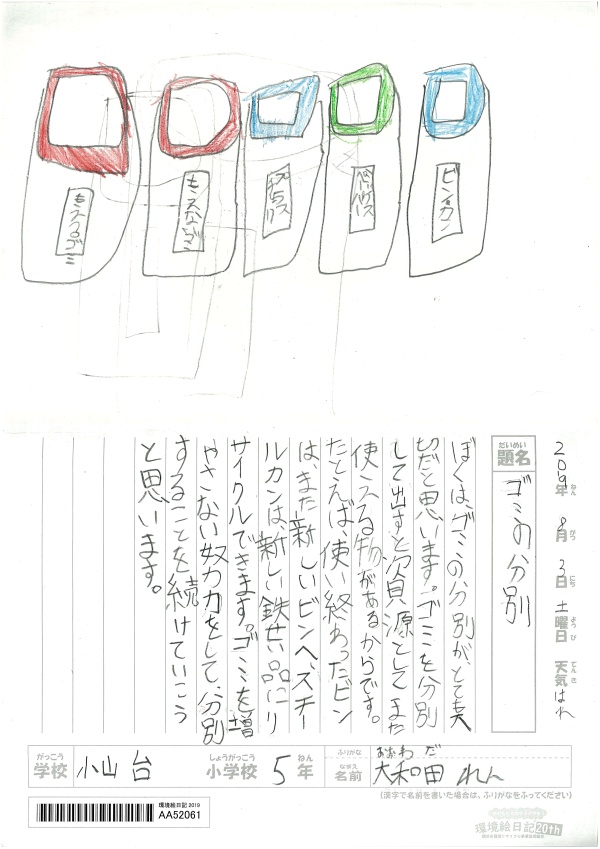 もえるゴミ
もえないゴミ
プラスチック
ペットボトル
ビン・カン
2019年 8月 3日 土曜日 天気 はれ
ねん がつ にち ようび てんき
だいめい
題名 ゴミの分別
ぼくは、ゴミの分別が、とても大
切だと思います。ゴミを分別
して出すと資源としてまた
使える物があるからです。
たとえば、使い終わったビン
は、また新しいビンへ、スチー
ルカンは、新しい鉄せい品にリ
サイクルできます。ゴミを増
やさない努力をして、分別
することを続けていこう
と思います。
がっこう
学校 小山台
しょうがっこう
小学校 5年
ねん
ふりがな おおわだ
なまえ
名前 大和田 れん
(漢字で名前を書いた場合は、ふりがなをふってください)
環境絵日記 2019
AA52061
環境絵日記20th